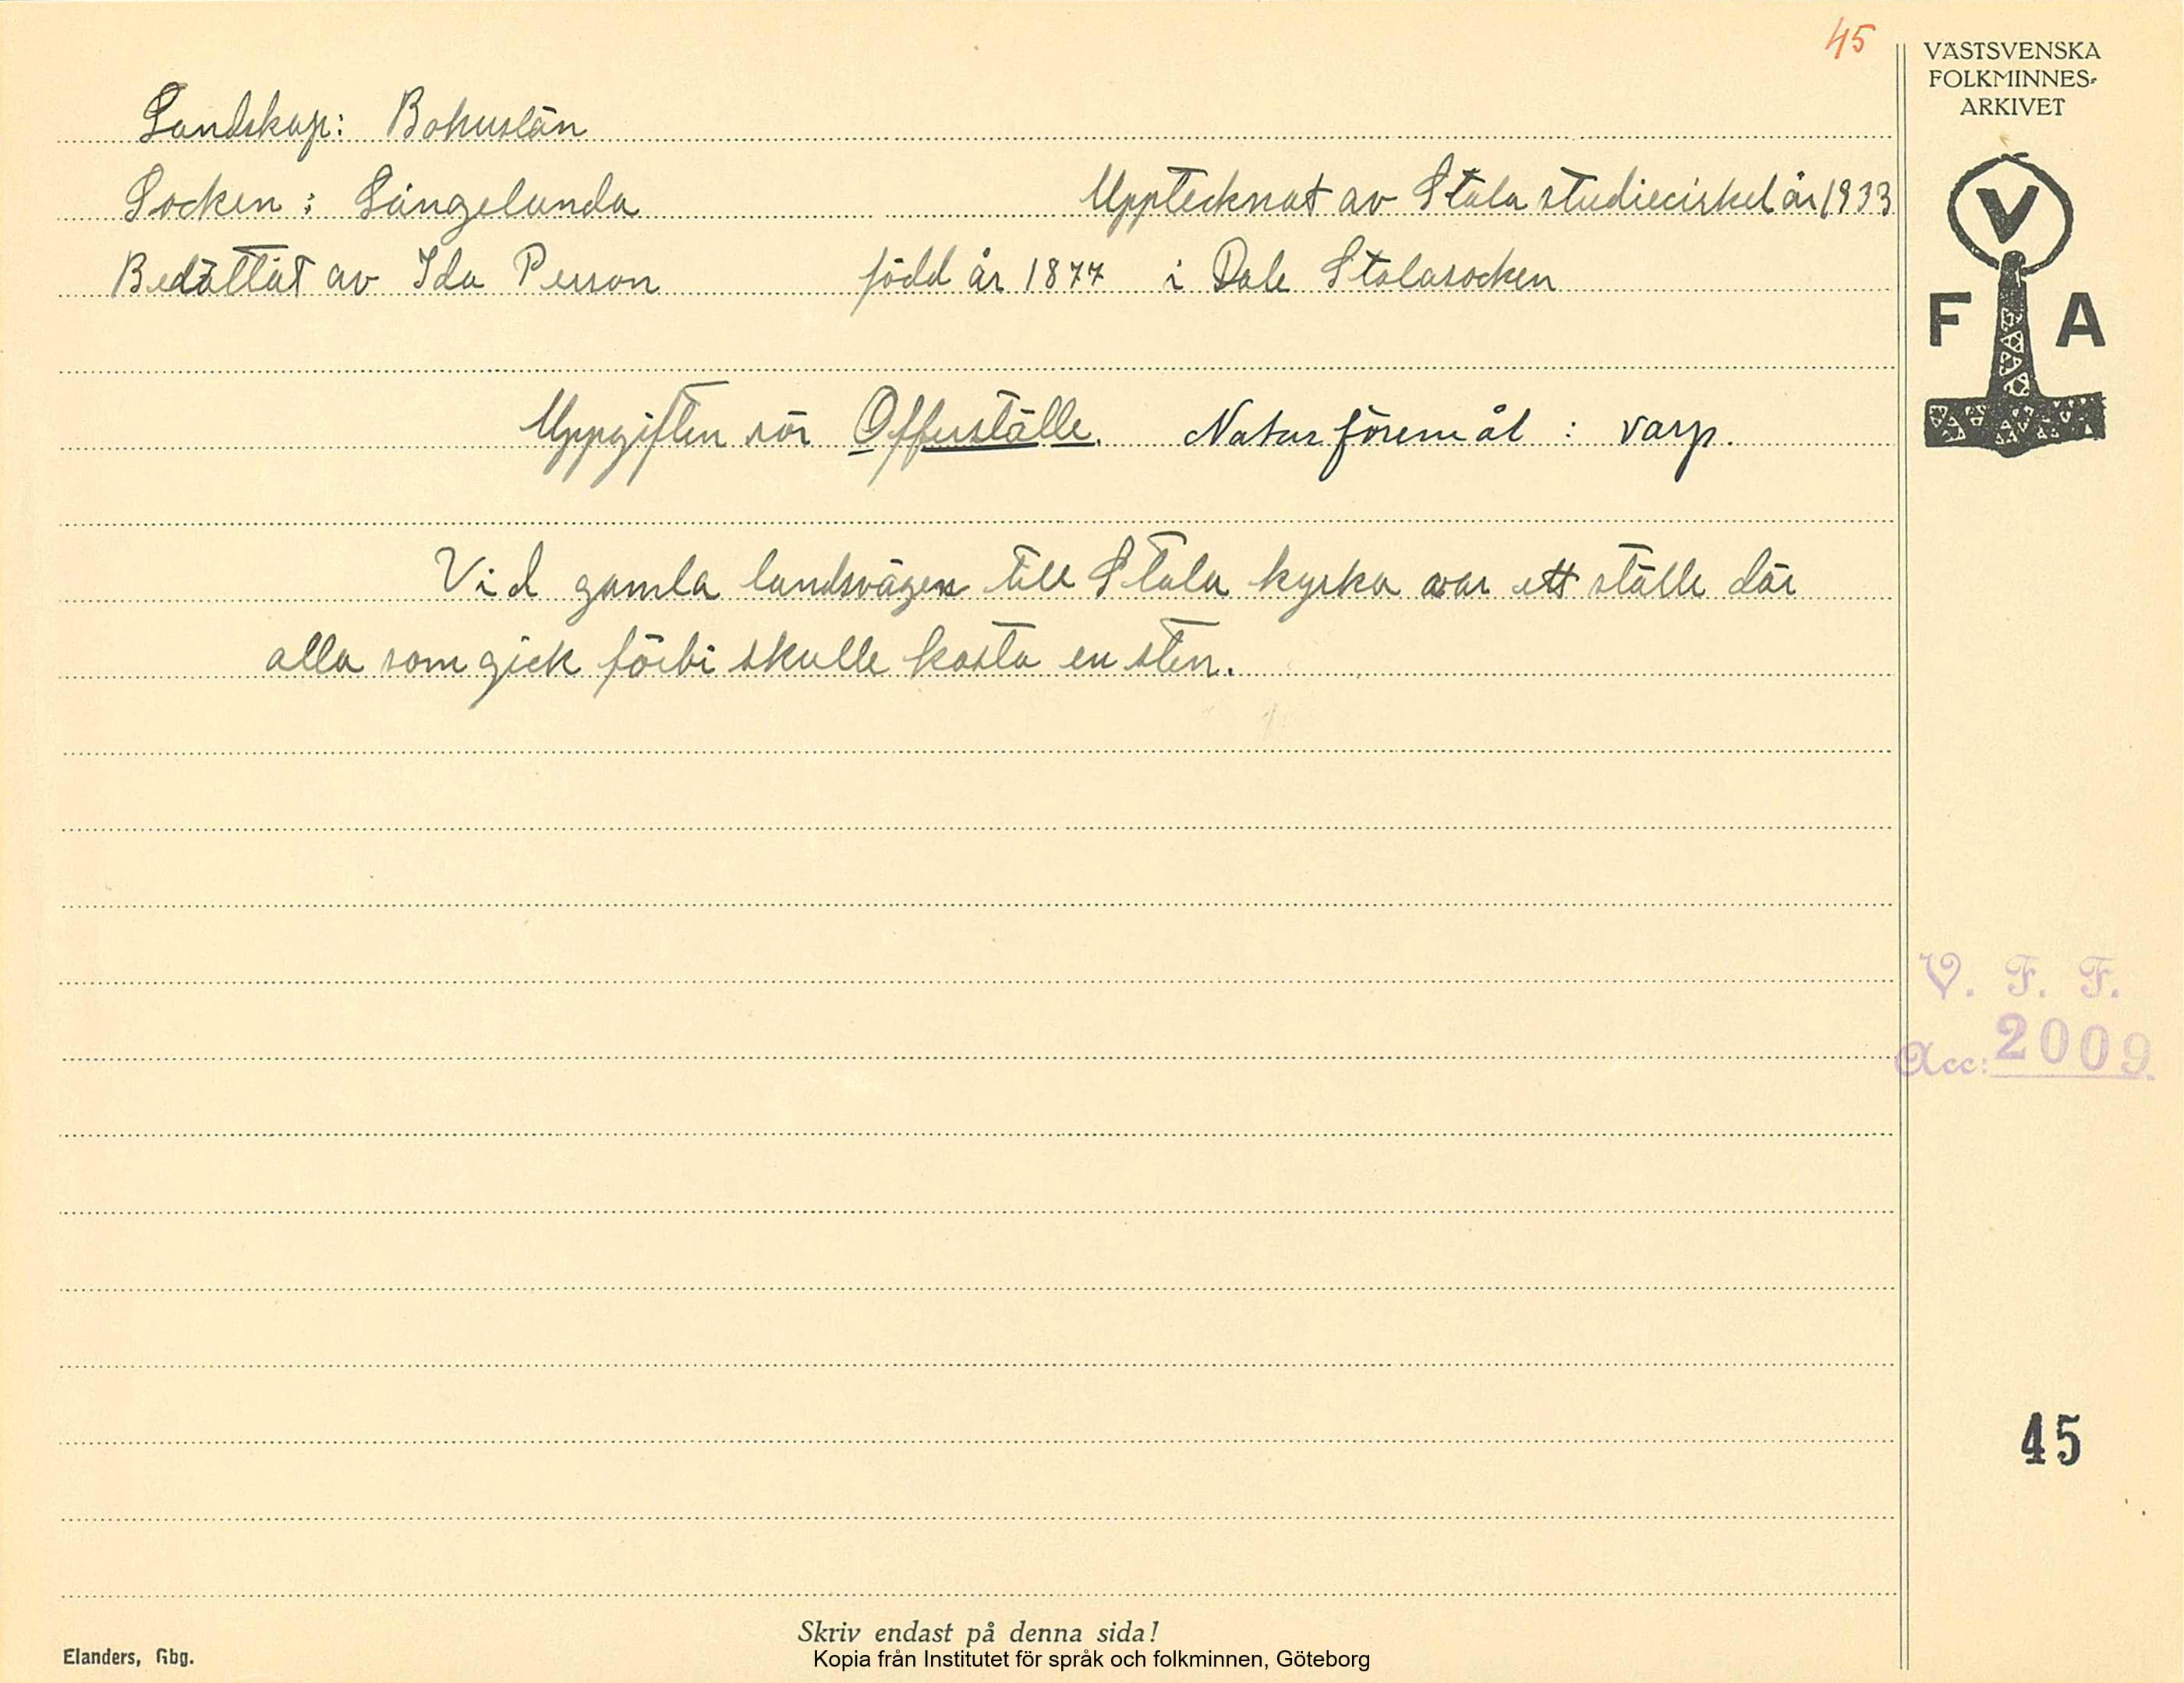 45
VÄSTSVENSKA
FOLKMINNES-
ARKIVET
Landskap: Bohuslän
Socken: Långelanda
Upptecknat av Stala studiecirkel år 1933
Berättat av Ida Person född år 1877 i Dale Stalasocken
V
F A
Uppgiften rör Offerställe. Naturföremål: varp.
Vid gamla landsvägen till Stala kyrka var ett ställe där
alla som gick förbi skulle kasta en sten.
V. F. F.
Acc: 2009.
45
Skriv endast på denna sida!
Elanders, Gbg.
Kopia från Institutet för språk och folkminnen, Göteborg